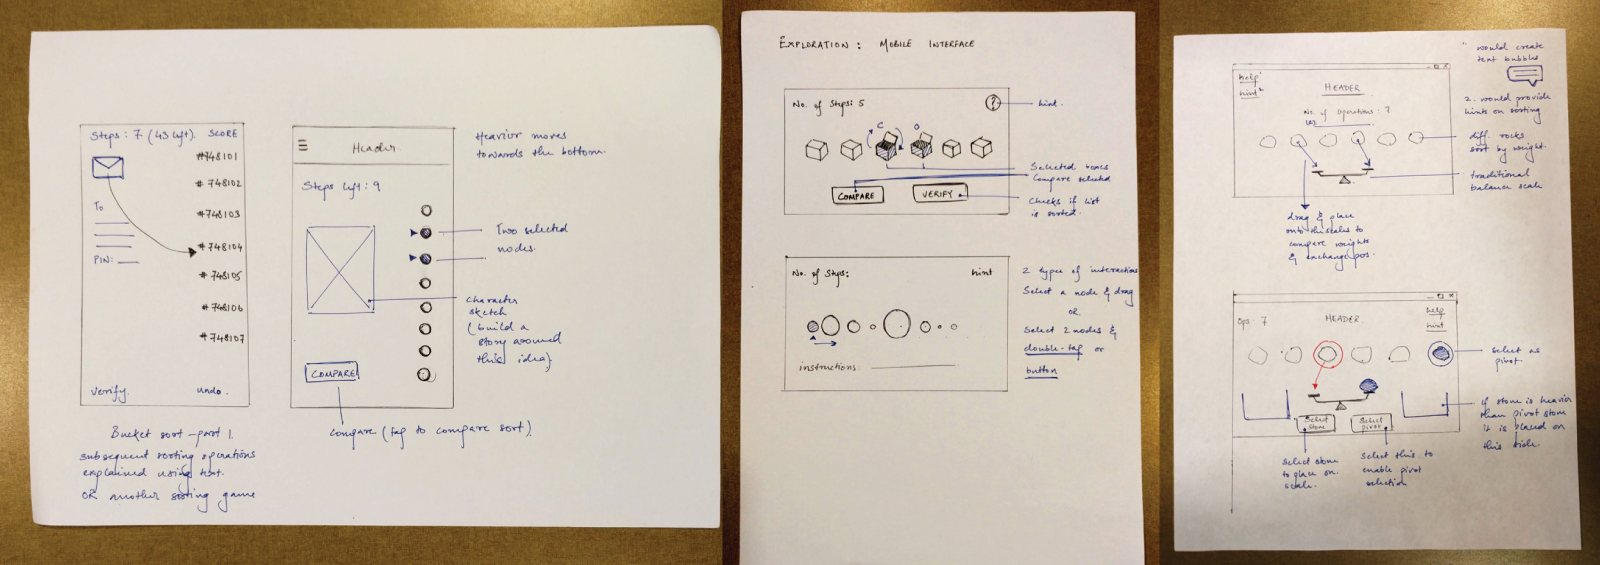 Steps: 7 (43 left). SCORE
#748101
# 748102
#748103
To
#748104
PIN:
#748105
#748106
#748107
Verify. undo.
Bucket sort - part 1.
subsequent sorting operations
explained using text.
OR another sorting game
Header.
Steps left: 9
COMPARE
Compare (tap to compare sort).
Heavier moves
towards the bottom.
Two selected
nodes.
Character
sketch
(build a
story around
this idea)
EXPLORATION: MOBILE INTERFACE
No. of Steps: 5
?
hint.
C
O
COMPARE
VERIFY
Selected boxes
Compare selected
Checks if list
is sorted.
No. of Steps:
hint
instructions:
2 types of interactions
Select a node & drag
OR
Select 2 nodes &
double-tap or
button
1. would create
text bubbles
2. would provide
hints on sorting
help1
hint2
HEADER
No. of Operations: 7
diff. rocks
sort by weight.
traditional
balance scale
drag & place
onto the scales to
compare weights
& exchange pos.
Ops: 7
HEADER
help
hint
select as
pivot.
Select
stone
Select
pivot
if stone is heavier
than pivot stone
it is placed on
this side.
Select stone
to place on
scale.
Select this to
enable pivot
selection